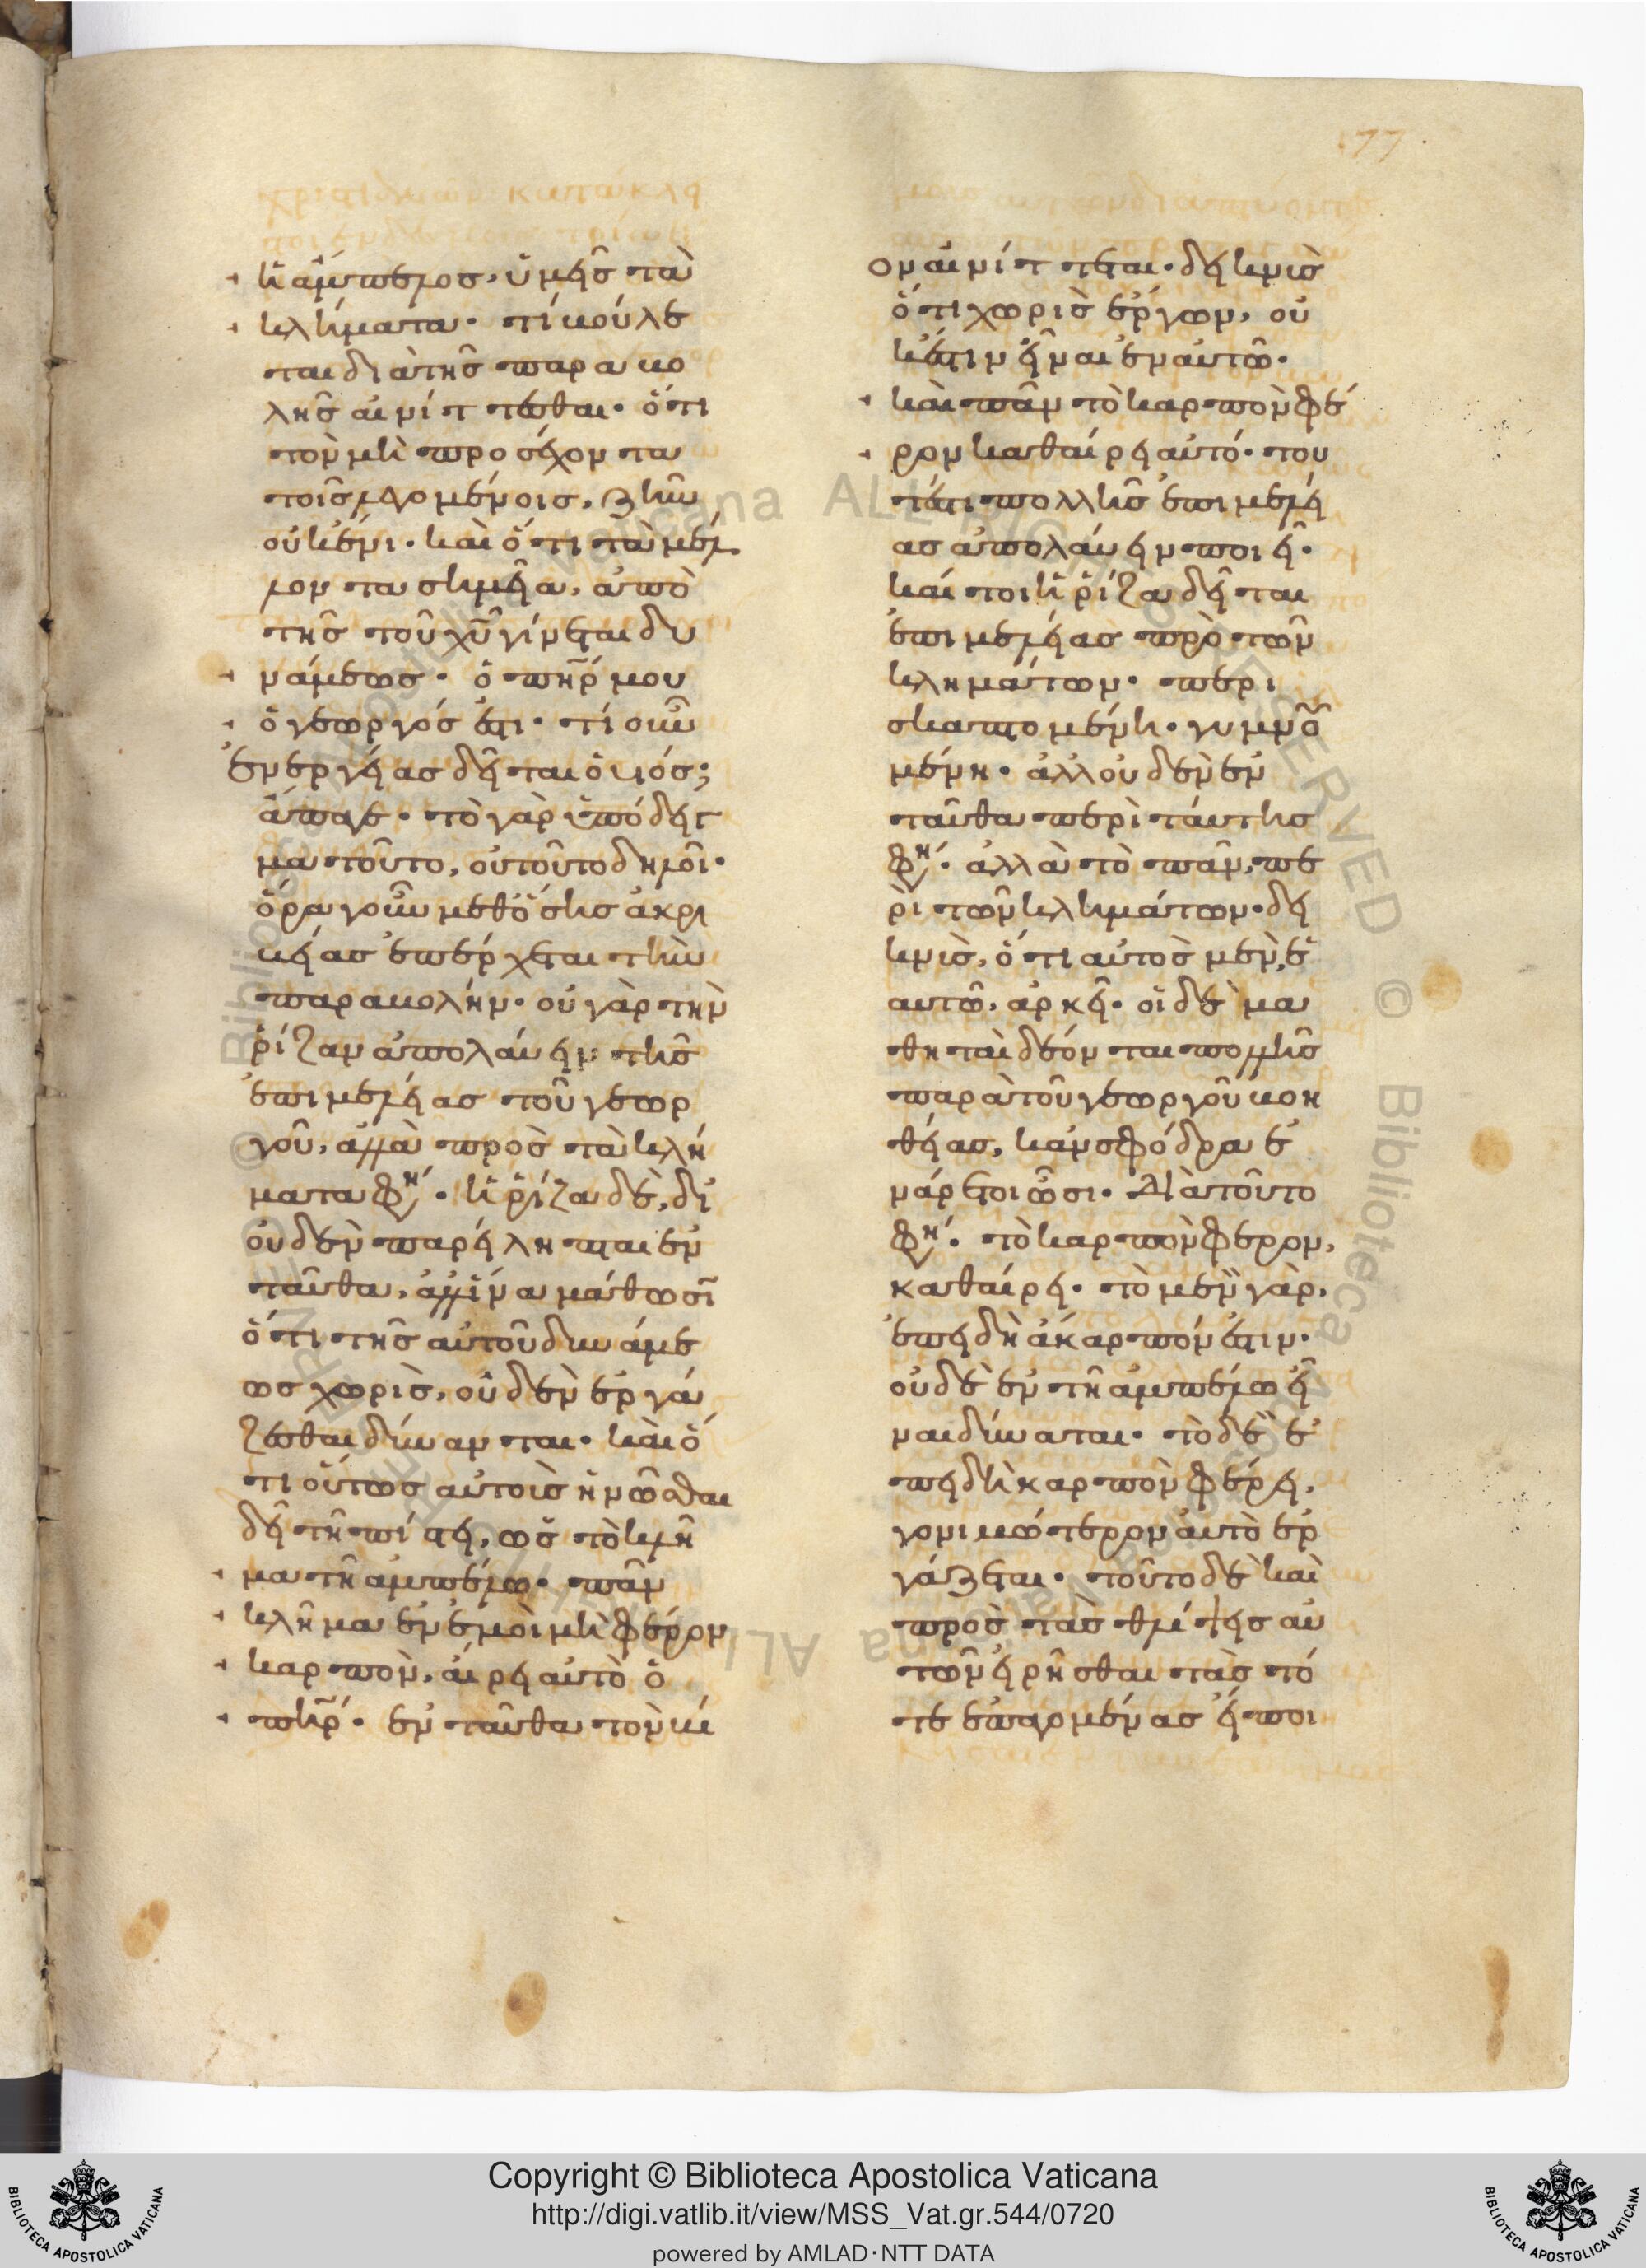 177
ἡ ἄμπελος, ὑμεῖς τὰ
κλήματα· τί βούλε
ται διὰ τῆς παραβο
λῆς αἰνίττεσθαι· ὅτι
τὸν μὴ προσέχοντα
τοῖς λεγομένοις, ζῆν
οὐκ ἔνι· καὶ ὅτι τὰ μέλ
λοντα σημεῖα, ἀπὸ
τῆς τοῦ χυ γίνεται δυ
νάμεως· ὁ πηρ μου
ὁ γεωργός ἐστι· τί οὖν
ἐνεργείας δεῖται ὁ υιός;
ἄπαγε· τὸ γὰρ ὑπόδειγ
μα τοῦτο, οὐ τοῦτο δηλοῖ·
ὅρα γοῦν μεθ' ὅσης ἀκρι
βείας ἐπέρχεται τὴν
παραβολήν· οὐ γὰρ τὴν
ῥίζαν ἀπολαύειν τῆς
ἐπιμελείας τοῦ γεωρ
γοῦ, ἀλλὰ πρὸς τὰ κλή
ματα φη· ἡ ῥίζα δὲ, δι'
οὐδὲν παρείληπται ἐν
ταῦθα, ἀλλ' ἵνα μάθωσϊ
ὅτι τῆς αὐτοῦ δυνάμε
ως χωρὶς, οὐδὲν ἐργά
ζεσθαι δύνανται· καὶ ὅ
τι οὕτως αὐτοὶς ἡνῶσθαι
δεῖ τῆ πίστει, ὡς τὸ κλῆ
μα τῆ ἀμπέλω· πᾶν
κλῆμα ἐν ἐμοὶ μὴ φέρον
καρπὸν, αἴρει αὐτὸ ὁ
πηρ· ἐνταῦθα τὸν βί
ον αἰνίττεται· δεικνὺς
ὅτι χωρὶς ἔργων, οὐ
κ ἔστιν εἶναι ἐν αὐτῶ·
καὶ πᾶν τὸ καρπὸν φέ
ρον καθαίρει αὐτό· του
τέστι πολλῆς ἐπιμελεί
ας ἀπολαύειν ποιεῖ·
καί τοι ἡ ῥίζα δεῖται
ἐπιμελείας πρὸ τῶν
κλημάτων· περι
σκαπτομένη· γυμνου
μένη· ἀλλ' οὐδὲν ἐν
ταῦθα περὶ ταύτης
φη· ἀλλὰ τὸ πᾶν, πε
ρὶ τῶν κλημάτων· δει
κνὺς, ὅτι αὐτὸς μὲν, ἑ
αυτῶ, ἀρκεῖ· οἱ δὲ μα
θηταὶ δέονται πολλῆς
παρὰ τοῦ γεωργοῦ βοη
θείας, κἂν σφόδρα ἐ
νάρετοι ὦσι· Διὰ τοῦτο
φη· τὸ καρπὸν φερον,
καθαίρει· τὸ μὲν γὰρ,
ἐπειδὴ ἄκαρπόν ἐστιν·
οὐδὲ ἐν τῆ ἀμπέλω εἶ
ναι δύναται· τὸ δὲ ἐ
πειδὴ καρπὸν φέρει,
γονιμώτερον αὐτὸ ἐρ
γάζεται· τοῦτο δὲ καὶ
πρὸς τὰς θλίψεις αὐ
τῶν εἰρῆσθαι τὰς τό
τε ἐπαγομένας εἴποι
Copyright © Biblioteca Apostolica Vaticana
http://digi.vatlib.it/view/MSS_Vat.gr.544/0720
powered by AMLAD·NTT DATA
BIBLIOTECA APOSTOLICA VATICANA
BIBLIOTECA APOSTOLICA VATICANA